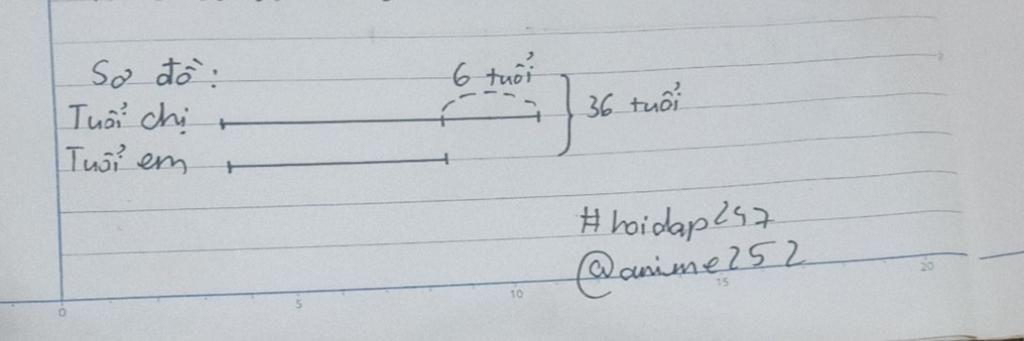 Sơ đồ:
6 tuổi
Tuổi chị
36 tuổi
Tuổi em
#hoidap247
@anime252
0 5 10 15 20